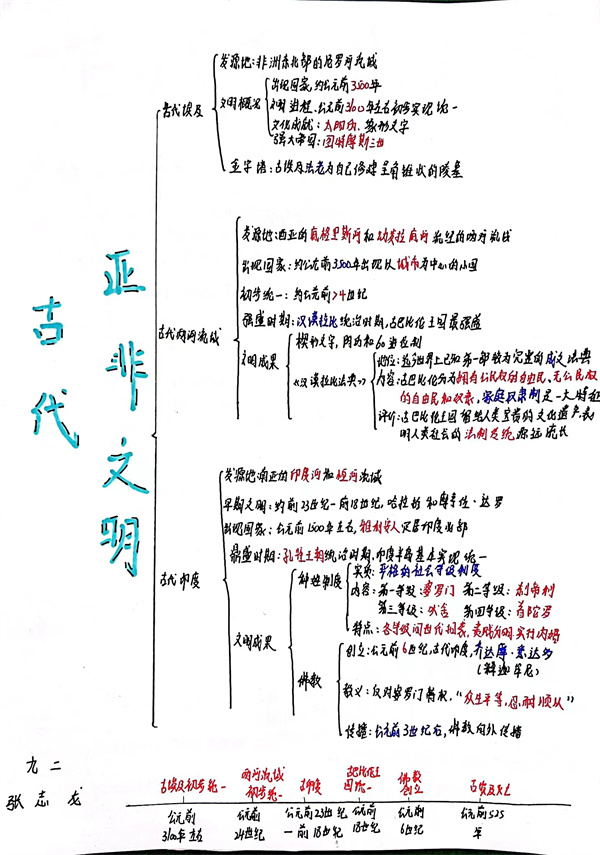 古代
亚非文明
古代埃及
发源地:非洲东北部的尼罗河流域
文明概况
出现国家,约公元前3500年
文明进程:公元前3100年左右初步实现统一
文化成就:太阳历、象形文字
强大帝国:图特摩斯三世
金字塔:古埃及法老为自己修建呈角锥状的陵墓
古代两河流域
发源地:西亚的底格里斯河和幼发拉底河流经的两河流域
出现国家:约公元前3500年出现以城市为中心的小国
初步统一:约公元前24世纪
强盛时期:汉谟拉比统治时期,古巴比伦王国最强盛
文明成果
楔形文字,阴历和60进位制
《汉谟拉比法典》
地位:迄今世界上已知第一部较为完整的成文法典
内容:古巴比伦分为拥有公民权的自由民、无公民权
的自由民和奴隶,家庭奴隶制是一大特征
评价:古巴比伦王国留给人类宝贵的文化遗产表
明人类社会的法制传统源远流长
古代印度
发源地:南亚的印度河和恒河流域
早期文明:约前23世纪一前18世纪,哈拉帕和摩亨佐·达罗
出现国家:公元前1500年左右,雅利安人入居印度西部
鼎盛时期:孔雀王朝统治时期,印度半岛基本实现统一
文明成果
种姓制度
实质:严格的社会等级制度
内容:第一等级:婆罗门 第二等级:刹帝利
第三等级:吠舍 第四等级:首陀罗
特点:各等级间世代相袭,贵贱分明,实行内婚
佛教
创立:公元前6世纪,古代印度,乔达摩·悉达多
(释迦牟尼)
教义:反对婆罗门特权,“众生平等,忍耐顺从”
传播:公元前3世纪左右,佛教向外传播
九二
张志龙
古埃及初步统一
两河流域
初步统一
古印度
古巴比伦王
国统一
佛教
创立
古埃及灭亡
公元前
3100年左右
公元前
24世纪
公元前23世纪
一前18世纪
公元前
18世纪
公元前
6世纪
公元前525
年